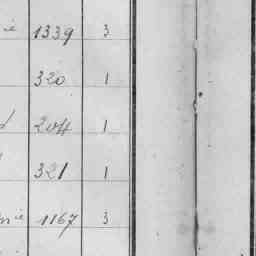 ie 1339 3
320 1
204 1
321 1
nie 1167 3